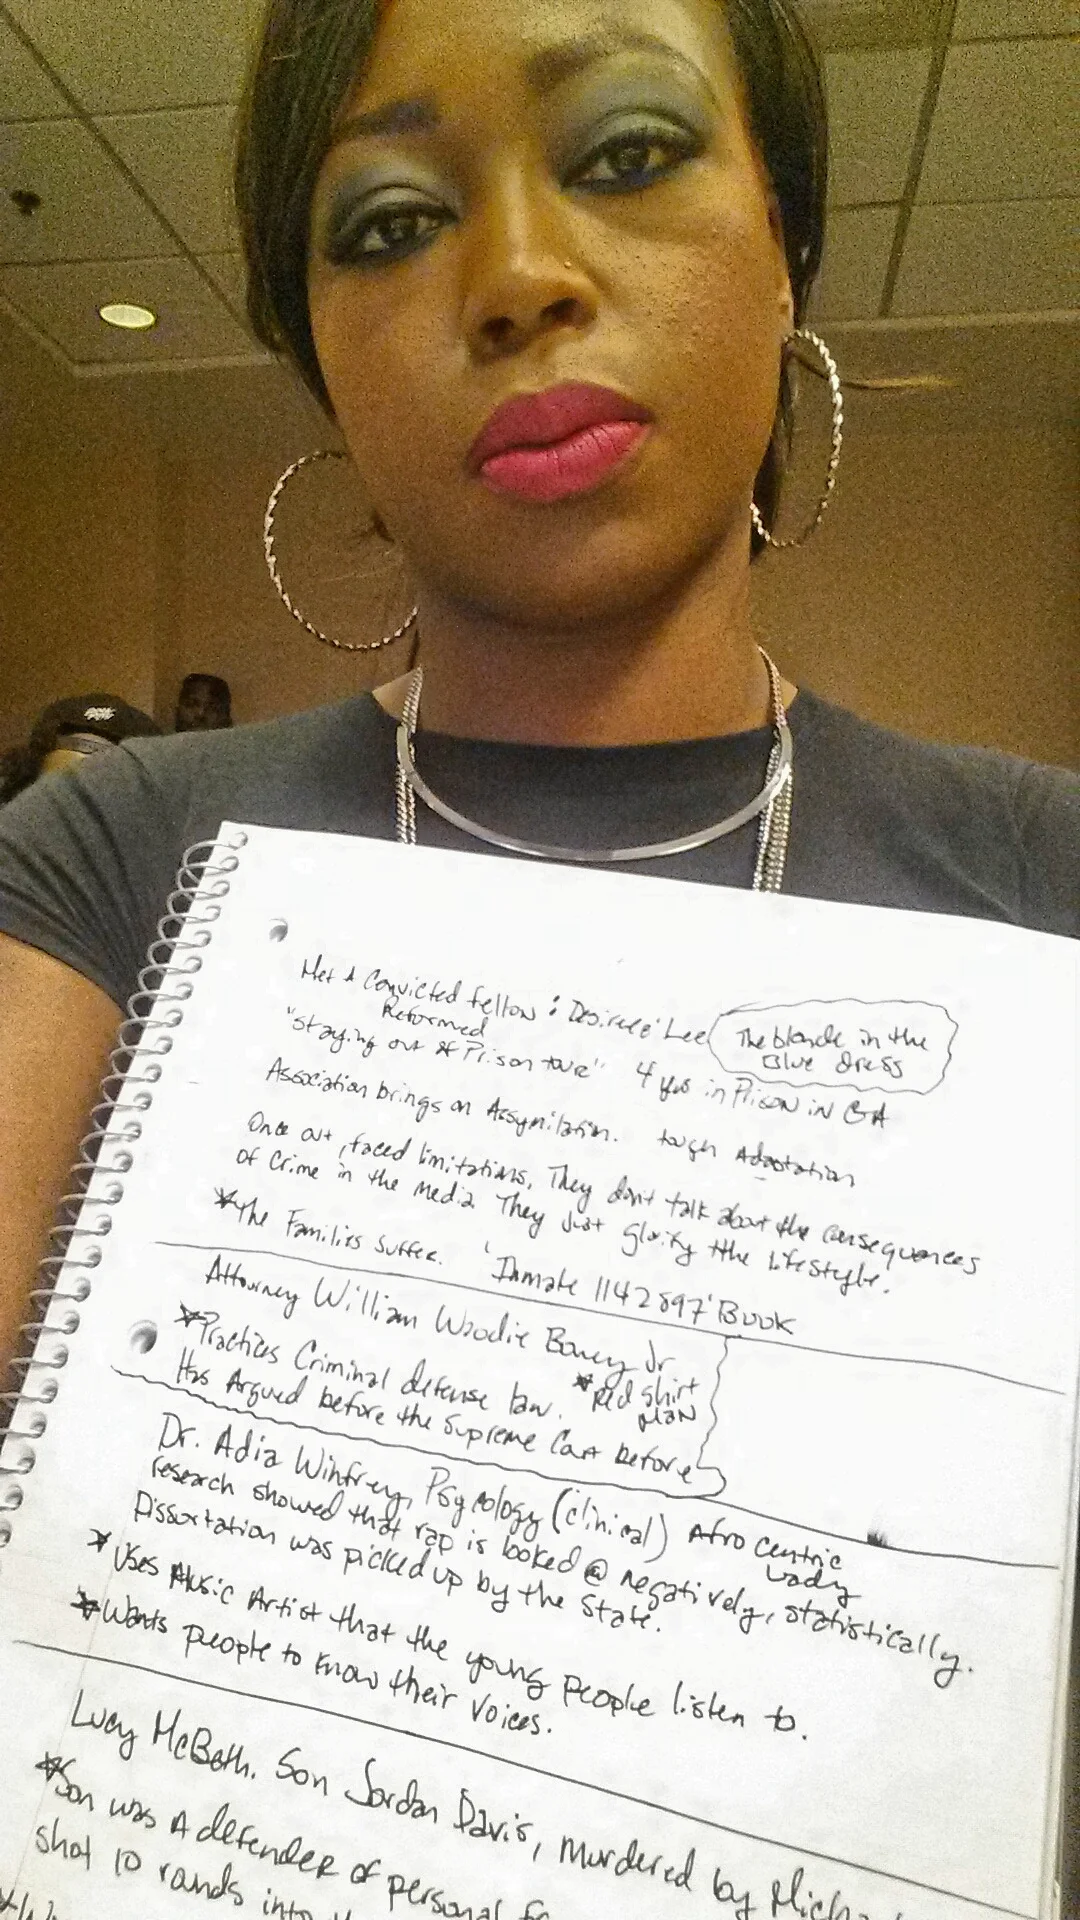 Met A Convicted fellow : Desireé Lee
The blonde in the
Blue dress
Reformed
"Staying out of Prison tour" 4 yrs in Prison in GA
Association brings on Assymilation. tough Adaptation
Once out, faced limitations, They don't talk about the consequences
of Crime in the Media. They Just glorify the lifestyle.
*The Families Suffer. 'Inmate 1142897' Book
Attorney William Woodie Boney Jr
*Practices Criminal defense law. *Red shirt
man
Has Argued before the Supreme Court before
Dr. Adia Winfrey, Psycology (clinical) Afro centric
Lady
research showed that rap is looked @ negatively, statistically.
Dissortation was picked up by the State.
*Uses Music Artist that the young people listen to.
*Wants people to know their voices.
Lucy McBath. Son Jordan Davis, Murdered by Micha
*Son was A defender of personal
shot 10 rounds into